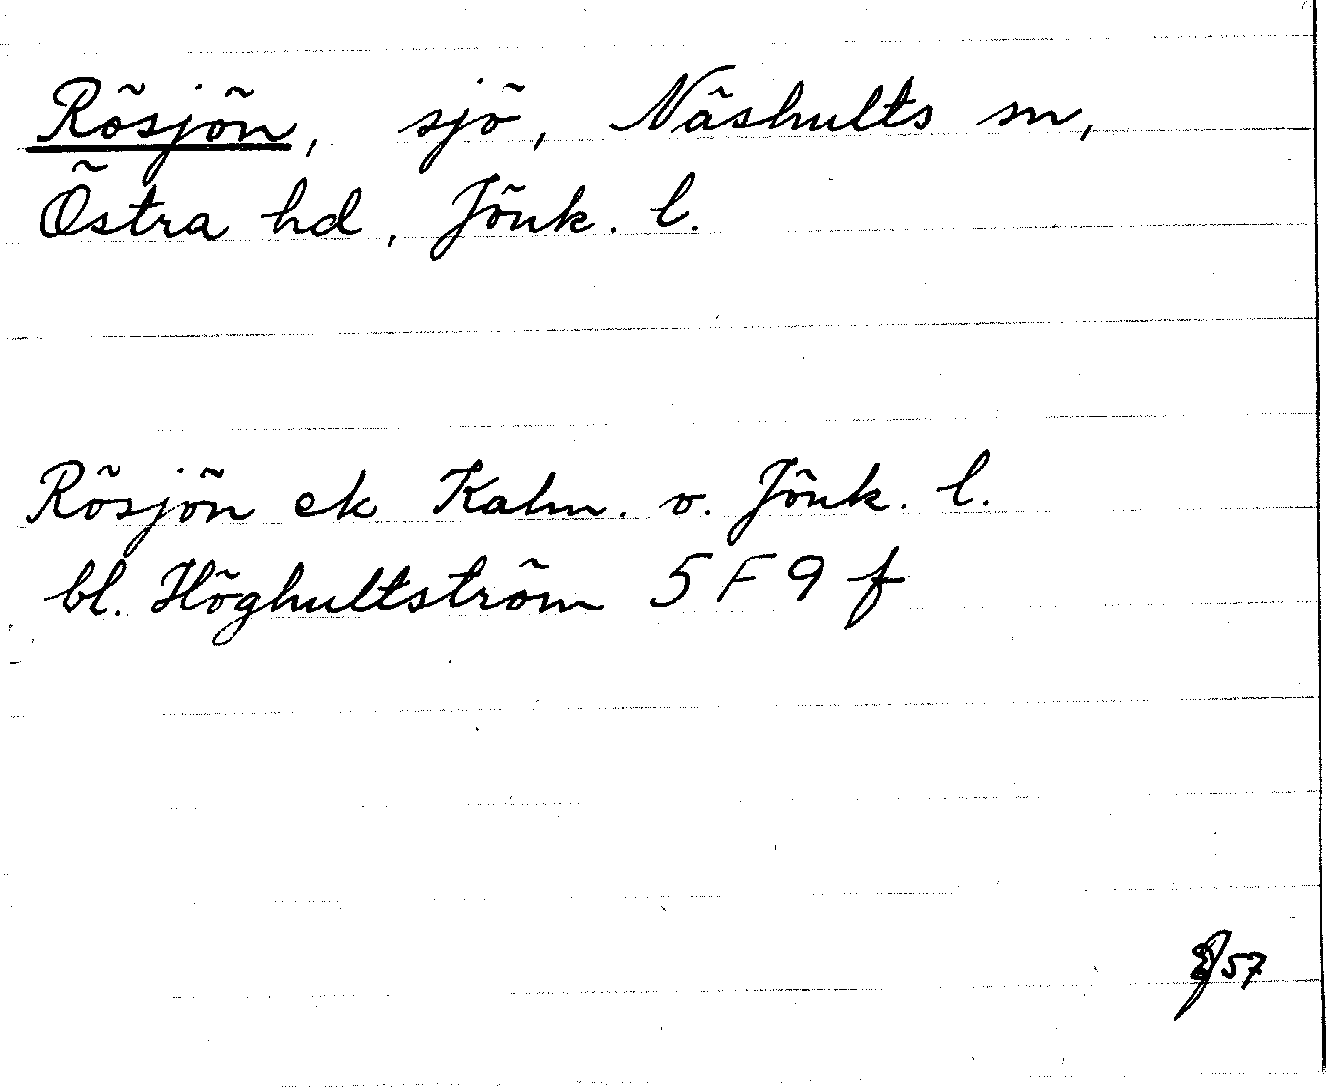 Rösjön, sjö, Näshults sn,
Östra hd, Jönk. l.
Rösjön ek Kalm. o. Jönk. l.
bl. Höghultström 5 F 9 f
57